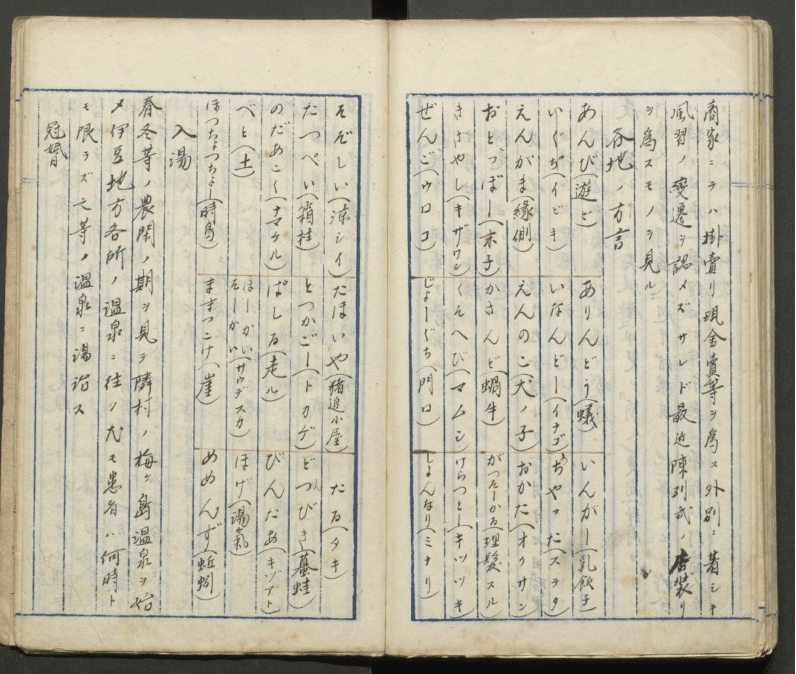 商家ニテハ掛賣リ現金賣等ヲ為ス外別ニ著シキ
風習ノ變遷ヲ認メズサレド最近陳列式ノ店装リ
ヲ為スモノヲ見ル
各地ノ方言
あんび(遊ビ) ありんどう(蟻) いんがー(乳飲子)
いぐぢ(イビキ) いなんどー(イナゴ) おやった(スラタ)
えんがま(縁側) えんのこ(犬ノ子) おかた(オクサン)
おとゝぼー(末子) かさんど(蝸牛) がつたーかる(理髪スル)
きざやし(キザワシ) くそへび(マムシ) けらつとー(キツツキ)
ぜんご(ウロコ) じょーぐち(門口) しょんなり(ミナリ)
そぞしい(涼シイ) たほいや(猪追小屋) たる(タキ)
たつぺい(霜柱) とつかごー(トカゲ) どつびき(蟇蛙)
のだあこく(ナマケル) ぱしる(走ル) びんだあ(キヅアト)
べと(土) ほーかい そーかい(サウデスカ) ほげ(湯氣)
ほつちょつちょー(時鳥) ままつこけ(崖) めめんず(蚯蚓)
入湯
春冬等ノ農閑ノ期ヲ見テ隣村ノ梅ヶ島温泉ヲ始
メ伊豆地方各所ノ温泉ニ往ク尤モ患者ハ何時ト
モ限ラズ之等ノ温泉ニ湯治ス
冠婚